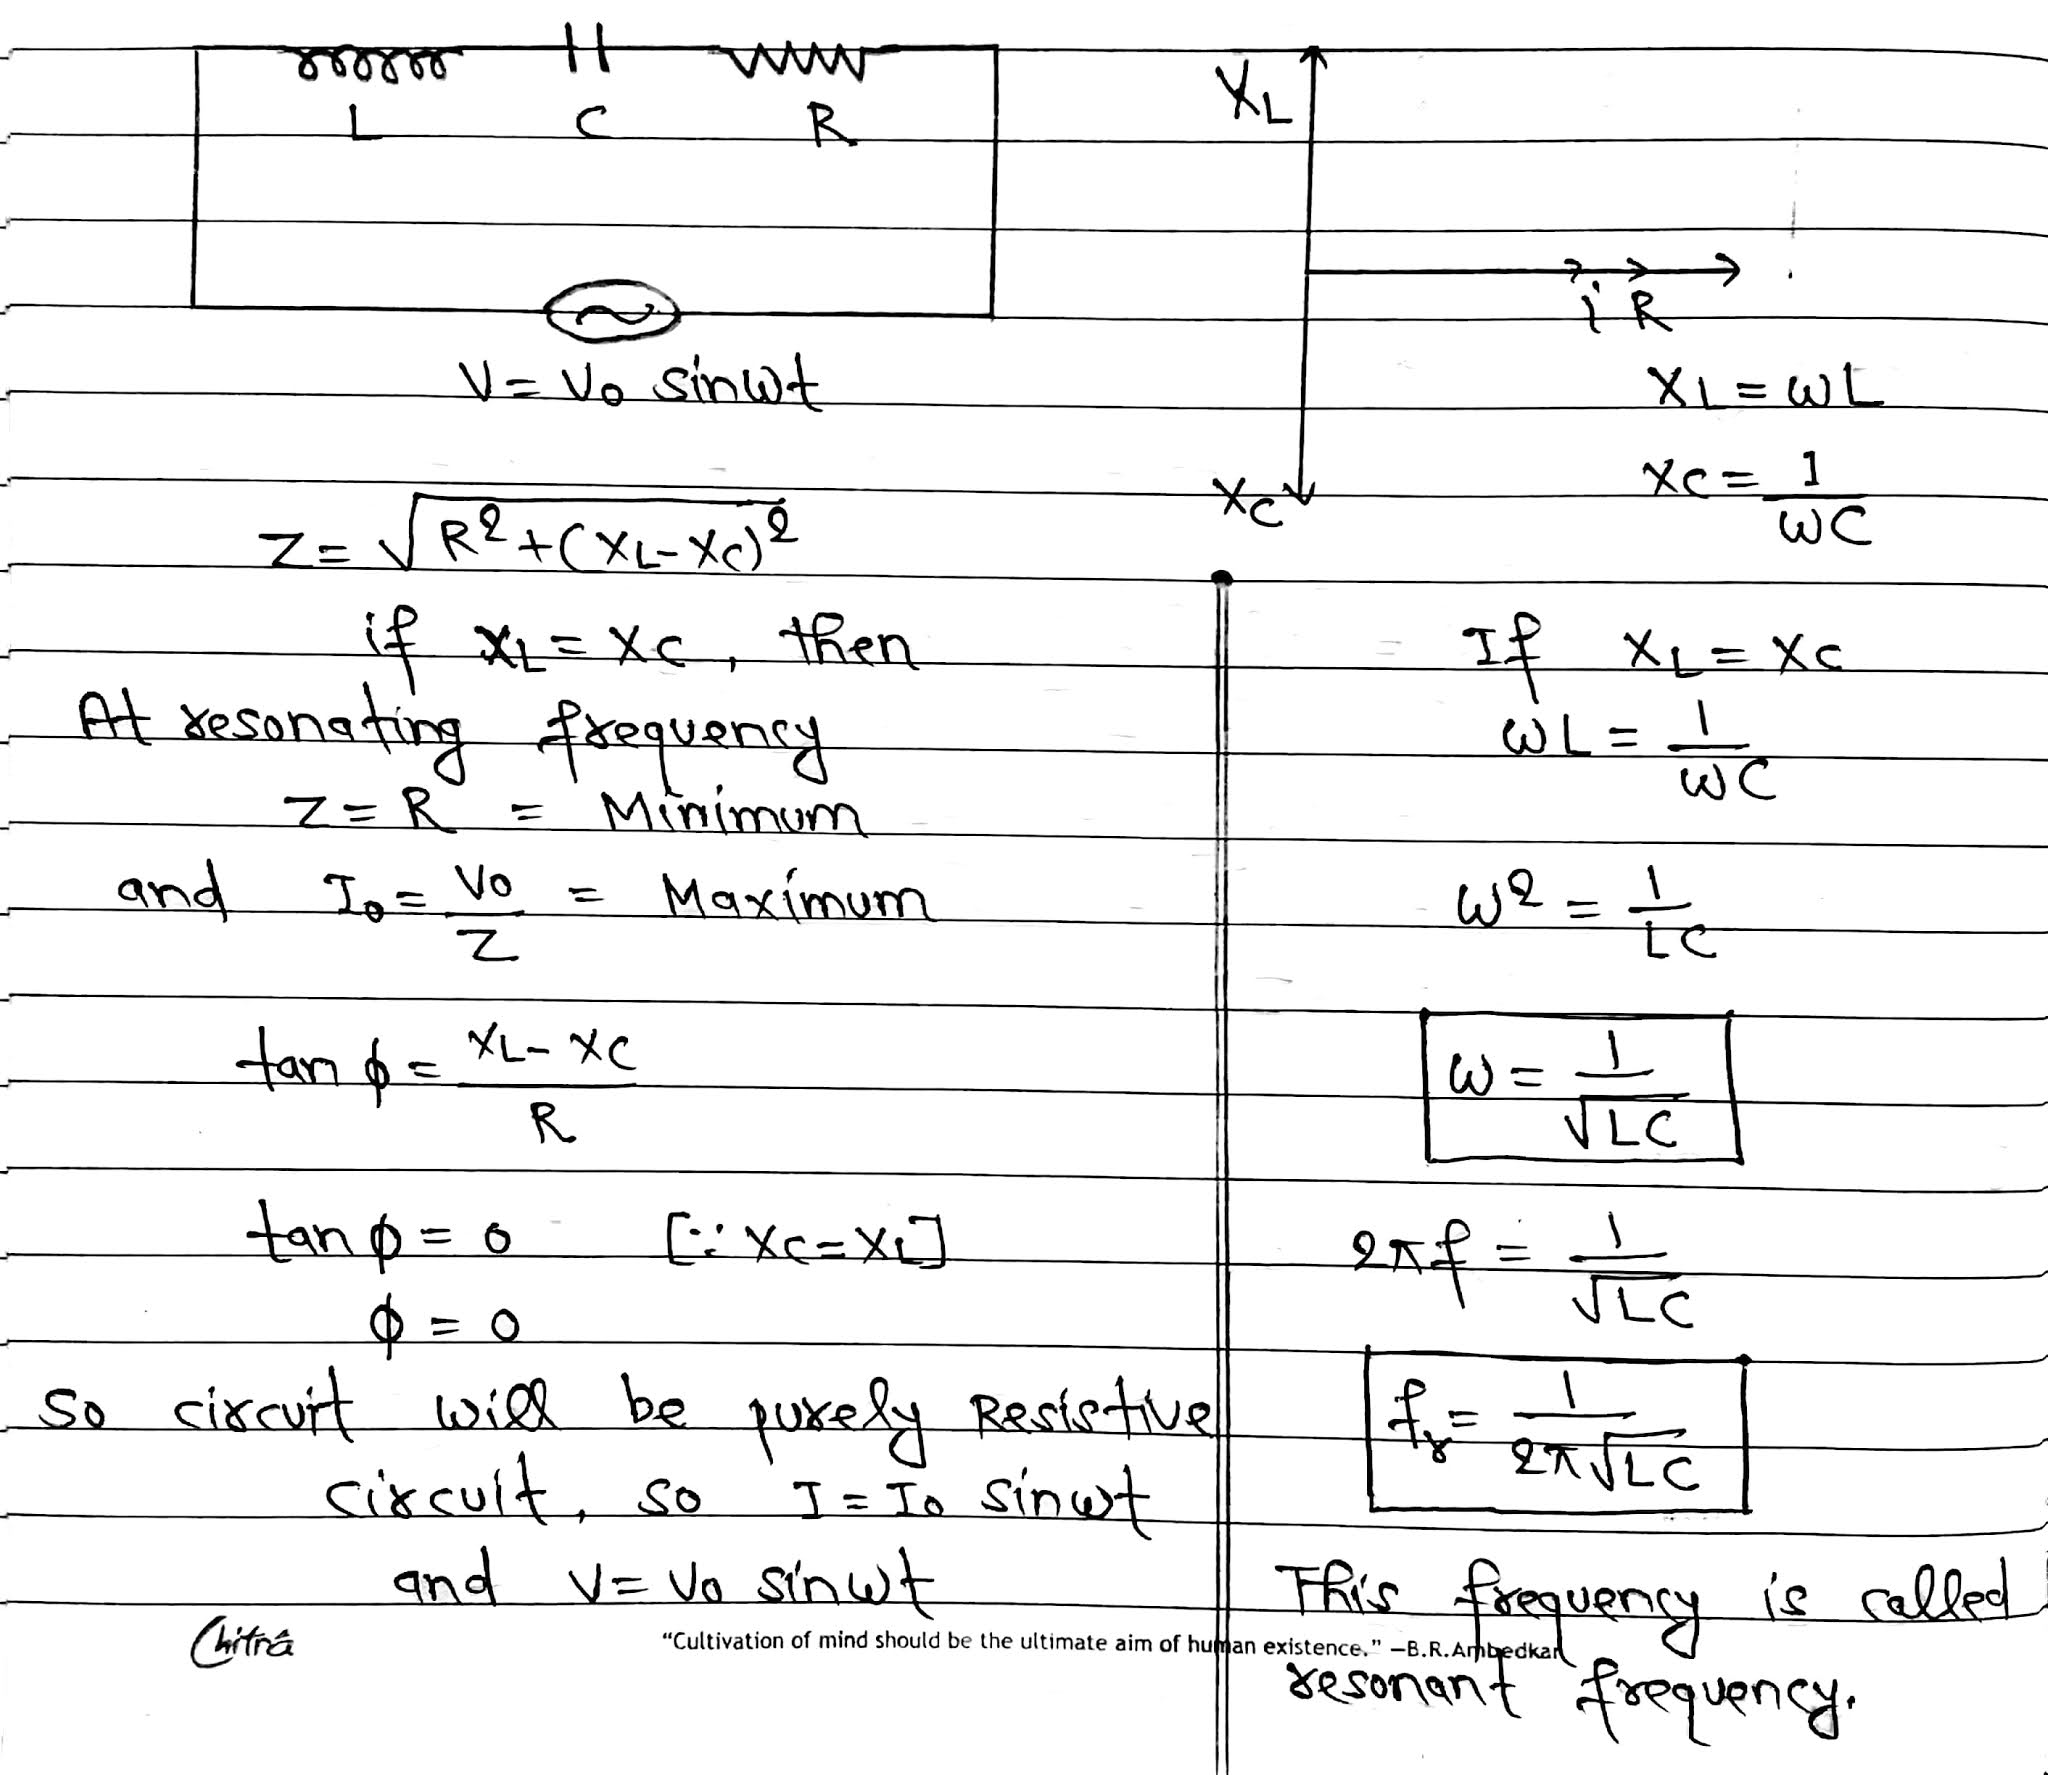 L C R
V = V0 sinωt
XL
i R
XL = ωL
XC = 1/ωC
XC
Z = √(R² + (XL - XC)²)
if XL = XC, then
At resonating frequency
Z = R = Minimum
and I0 = V0/Z = Maximum
tan ϕ = (XL - XC)/R
tan ϕ = 0 [∵ XC = XL]
ϕ = 0
So circuit will be purely Resistive
circuit, so I = I0 sinωt
and V = V0 sinωt
If XL = XC
ωL = 1/ωC
ω² = 1/LC
ω = 1/√LC
2πf = 1/√LC
fr = 1/2π√LC
This frequency is called
resonant frequency.
Chitrā
"Cultivation of mind should be the ultimate aim of human existence." —B.R.Ambedkar